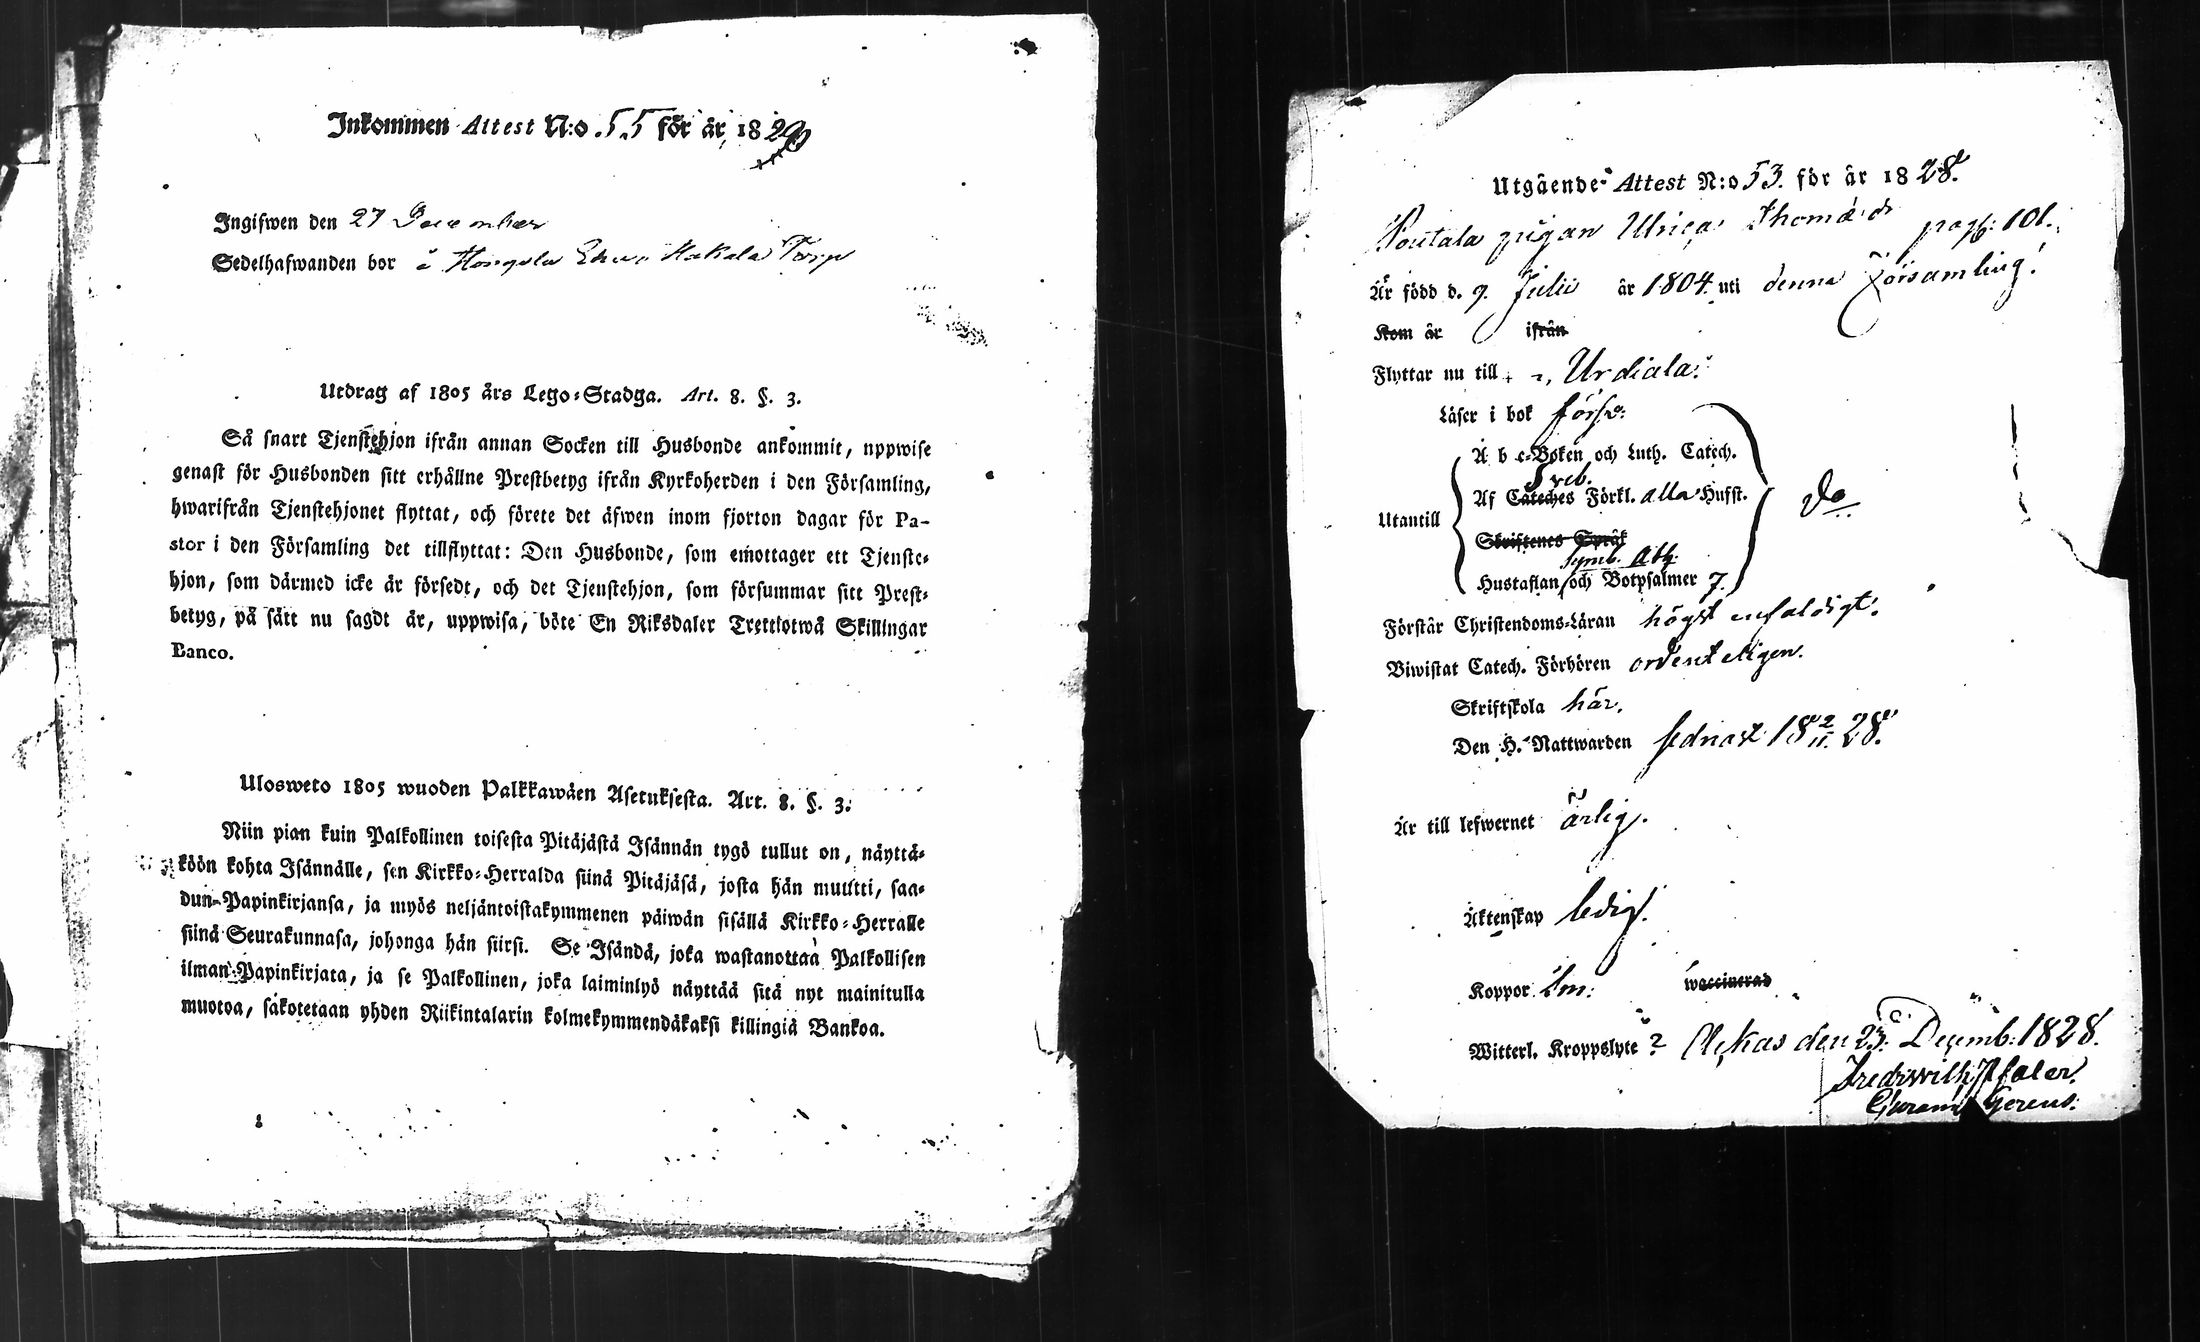 Inkommen Attest N:o 55 för år 1829
Ingifwen den 27 December
Sedelhafwanden bor å Hongola Torp
Utdrag af 1805 års Lego-Stadga. Art. 8. §. 3.
Så snart Tjenstehjon ifrån annan Socken till Husbonde ankommit, uppwise
genast för Husbonden sitt erhållne Prestbetyg ifrån Kyrkoherden i den Församling,
hwarifrån Tjenstehjonet flyttat, och förete det äfwen inom fjorton dagar för Pa-
stor i den Församling det tillflyttat: Den Husbonde, som emottager ett Tjenste-
hjon, som därmed icke är försedt, och det Tjenstehjon, som försummar sitt Prest-
betyg, på sätt nu sagdt är, uppwisa, böte En Riksdaler Trettiotwå Skillingar
Banco.
Ulosweto 1805 wuoden Palkkawäen Asetuksesta. Art. 8. §. 3.
Niin pian kuin Palkollinen toisesta Pitäjästä Isännän tygö tullut on, näyttä-
köön kohta Isännälle, sen Kirkko-Herralda siinä Pitäjäsä, josta hän muutti, saa-
dun Papinkirjansa, ja myös neljäntoistakymmenen päiwän sisällä Kirkko-Herralle
siinä Seurakunnasa, johonga hän siirsi. Se Isändä, joka wastanottaa Palkollisen
ilman Papinkirjata, ja se Palkollinen, joka laiminlyö näyttää sitä nyt mainitulla
muotoa, sakotetaan yhden Riikintalarin kolmekymmendäkaksi killingiä Bankoa.
Utgående Attest N:o 53. för år 1828.
Poutala pigan Ulrica Thomæ dr pag: 101.
Är född d. 9. Julii år 1804. uti denna Församling.
Kom år ifrån
Flyttar nu till Urdiala.
Läser i bok förs:
A b c-Boken och Luth. Catech.
Sveb.
Af Catechès Förkl. alla Hufst.
Utantill
Skriftenes Språk
Symb. Ath.
Hustaflan och Botpsalmer 7.
Förstår Christendoms-Läran högst enfaldigt.
Biwistat Catech. Förhören ordenteligen.
Skriftskola här.
Den H. Nattwarden sednast 18 2/11 28.
Är till lefwernet ärlig.
Äktenskap ledig.
Koppor waccinerad
Witterl. Kroppslyte ? Ackas den 23. Decemb: 1828.